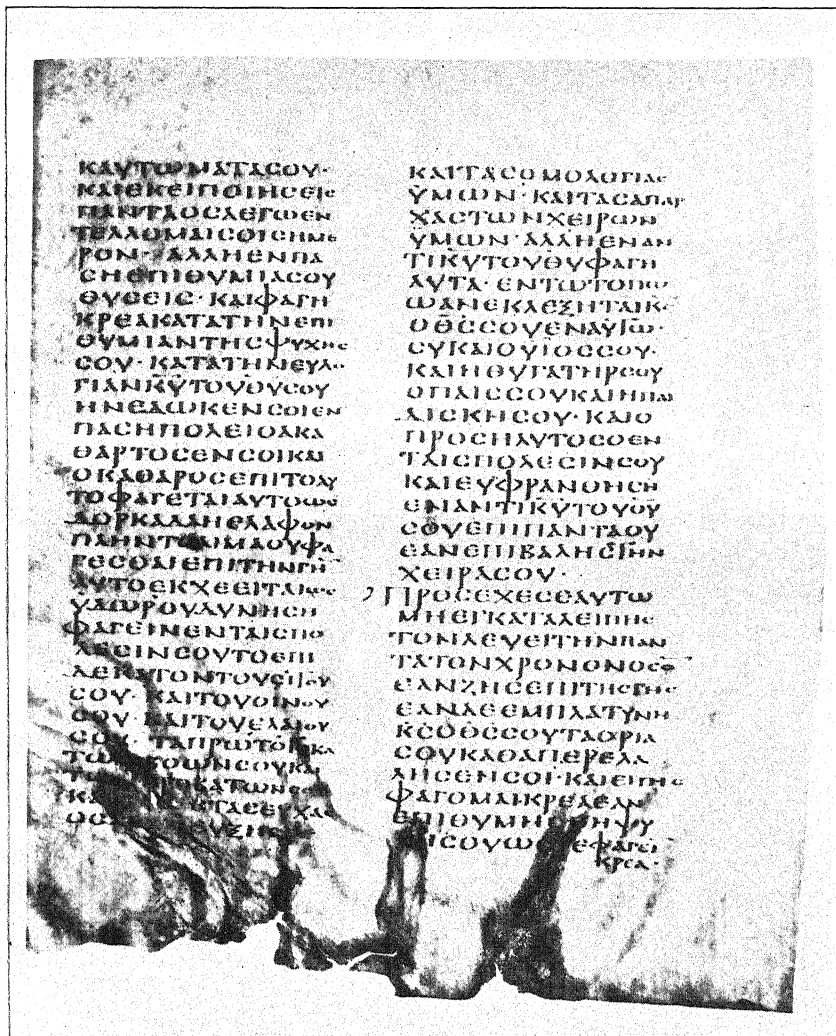 ΚΑΥΤΩΜΑΤΑΣΟΥ·
ΚΑΙΕΚΕΙΠΟΙΗΣΕΙΣ
ΠΑΝΤΑΟΣΑΕΓΩΕΝ
ΤΕΛΛΟΜΑΙΣΟΙΣΗΜΕ
ΡΟΝ· ΑΛΛΗΕΝΠΑ
ΣΗΕΠΙΘΥΜΙΑΣΟΥ
ΘΥΣΕΙΣ· ΚΑΙΦΑΓΗ
ΚΡΕΑΚΑΤΑΤΗΝΕΠΙ
ΘΥΜΙΑΝΤΗΣΨΥΧΗΣ
ΣΟΥ· ΚΑΤΑΤΗΝΕΥΛΟ
ΓΙΑΝΚ̅Υ̅ΤΟΥΘ̅Υ̅ΣΟΥ
ΗΝΕΔΩΚΕΝΣΟΙΕΝ
ΠΑΣΗΠΟΛΕΙΟΑΚΑ
ΘΑΡΤΟΣΕΝΣΟΙΚΑΙ
ΟΚΑΘΑΡΟΣΕΠΙΤΟΑΥ
ΤΟΦΑΓΕΤΑΙΑΥΤΟΩΣ
ΔΟΡΚΑΔΑΗΕΛΑΦΟΝ
ΠΛΗΝΤΟΑΙΜΑΟΥΦΑ
ΓΕΣΘΑΙΕΠΙΤΗΝΓΗ̅
ΑΥΤΟΕΚΧΕΕΙΤΑΙΩΣ
ΥΔΩΡΟΥΔΥΝΗΣΗ
ΦΑΓΕΙΝΕΝΤΑΙΣΠΟ
ΛΕΣΙΝΣΟΥΤΟΕΠΙ
ΔΕΚΑΤΟΝΤΟΥΣΙΤΟΥ
ΣΟΥ· ΚΑΙΤΟΥΟΙΝΟΥ
ΣΟΥ· ΚΑΙΤΟΥΕΛΑΙΟΥ
ΣΟΥ· ΤΑΠΡΩΤΟΤΟΚΑ
ΤΩΝ ΣΟΥΚΑΙ
ΚΑΙΤΑΣΟΜΟΛΟΓΙΑΣ
ΫΜΩΝ· ΚΑΙΤΑΣΑΠΑΡ
ΧΑΣΤΩΝΧΕΙΡΩΝ
ΫΜΩΝ· ΑΛΛΗΕΝΑΝ
ΤΙΚ̅Υ̅ΤΟΥΘ̅Υ̅ΦΑΓΗ
ΑΥΤΑ· ΕΝΤΩΤΟΠΩ
ΩΑΝΕΚΛΕΞΗΤΑΙΚ̅Σ̅
ΟΘ̅Σ̅ΣΟΥΕΝΑΥΤΩ·
ΣΥΚΑΙΟΥΙΟΣΣΟΥ·
ΚΑΙΗΘΥΓΑΤΗΡΣΟΥ
ΟΠΑΙΣΣΟΥΚΑΙΗΠΑΙ
ΔΙΣΚΗΣΟΥ· ΚΑΙΟ
ΠΡΟΣΗΛΥΤΟΣΟΕΝ
ΤΑΙΣΠΟΛΕΣΙΝΣΟΥ
ΚΑΙΕΥΦΡΑΝΘΗΣΗ
ΕΝΑΝΤΙΚ̅Υ̅ΤΟΥΘ̅Υ̅
ΣΟΥΕΠΙΠΑΝΤΑΟΥ
ΕΑΝΕΠΙΒΑΛΗΣΤΗΝ
ΧΕΙΡΑΣΟΥ·
ΠΡΟΣΕΧΕΣΕΑΥΤΩ
ΜΗΕΓΚΑΤΑΛΕΙΠΗΣ
ΤΟΝΛΕΥΕΙΤΗΝΠΑΝ
ΤΑΤΟΝΧΡΟΝΟΝΟΣΟ̅
ΕΑΝΖΗΣΕΠΙΤΗΣΓΗΣ
ΕΑΝΔΕΕΜΠΛΑΤΥΝΗ
Κ̅Σ̅ΟΘ̅Σ̅ΣΟΥΤΑΟΡΙΑ
ΣΟΥΚΑΘΑΠΕΡΕΛΑ
ΛΗΣΕΝΣΟΙ· ΚΑΙΕΙΠΗΣ
ΦΑΓΟΜΑΙΚΡΕΑΕΑΝ
ΕΠΙΘΥΜΗΣΗΗΨΥ
ΦΑΓΕΙ
ΚΡΕΑ·